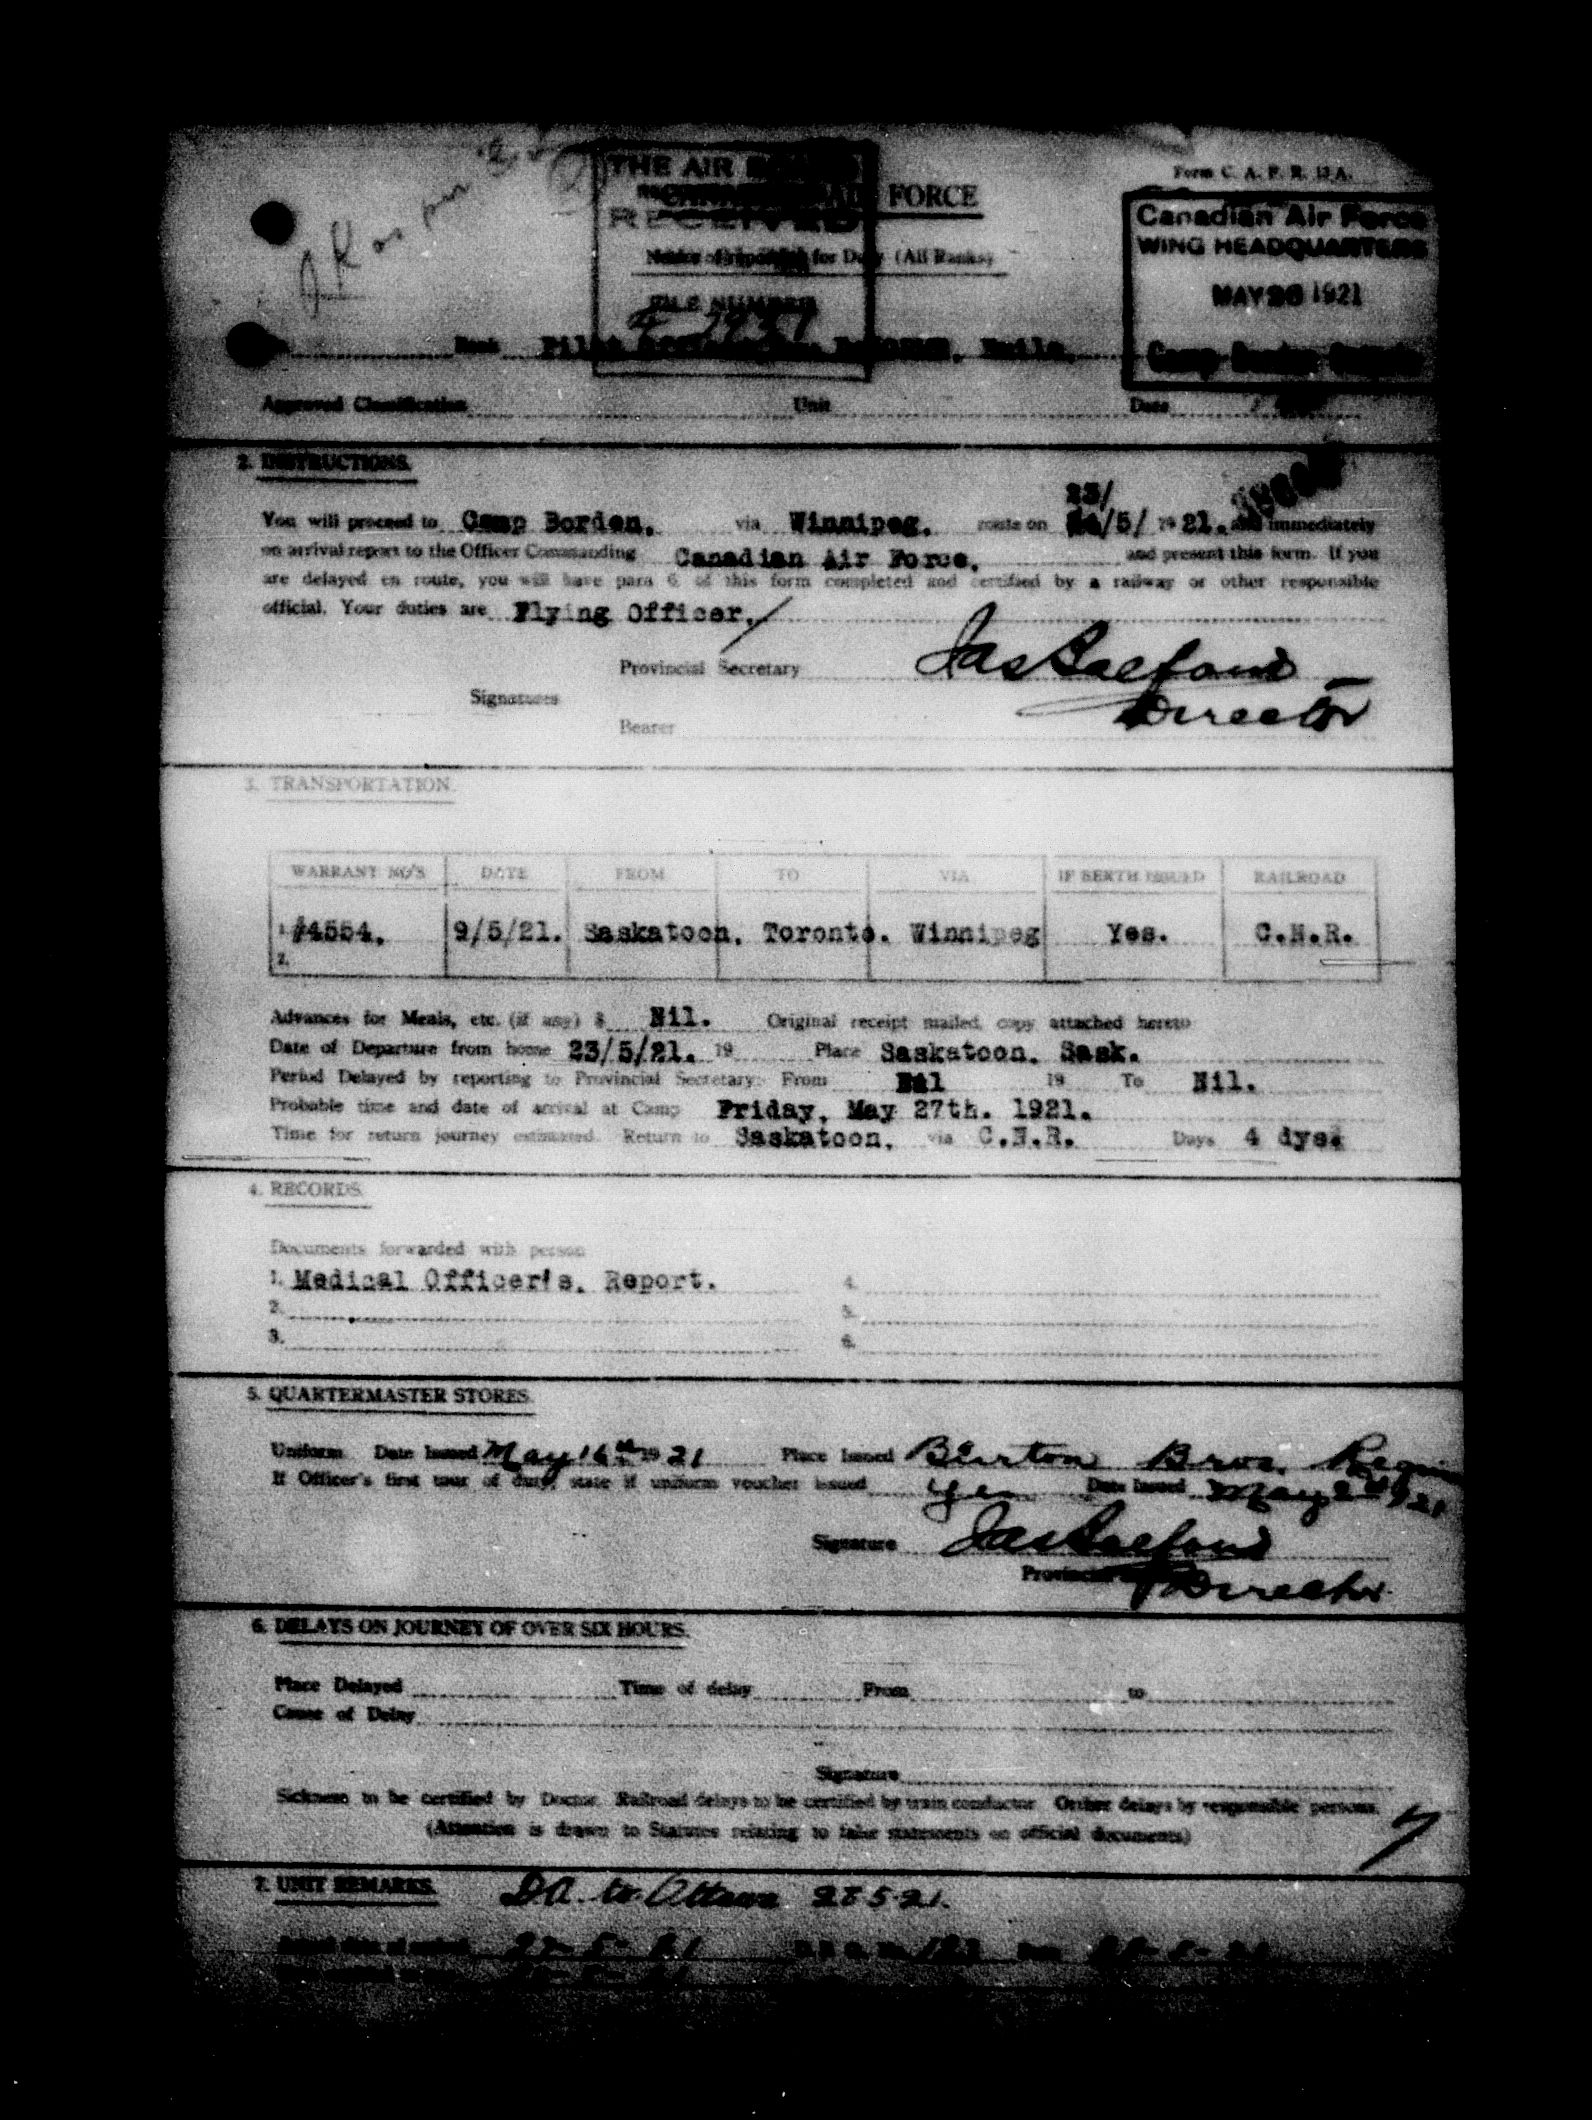 Form C. A. F. R. 13A.
THE AIR
RECEIVED
FORCE
Canadian Air Force
WING HEADQUARTERS
MAY 26 1921
Camp Borden, Ontario
for Duty (All Ranks)
FILE NUMBER
Rank Pilot
Approved Classification Unit Date
2. INSTRUCTIONS.
23/
You will proceed to Camp Borden. via Winnipeg. route on /5/ 1921. and immediately
on arrival report to the Officer Commanding Canadian Air Force. and present this form. If you
are delayed en route, you will have para 6 of this form completed and certified by a railway or other responsible
official. Your duties are Flying Officer.
Provincial Secretary Jas Balfour
Director
Signatures
Bearer
3. TRANSPORTATION.
WARRANT NO'S DATE FROM TO VIA IF BERTH ISSUED RAILROAD
1. #4554. 9/5/21. Saskatoon. Toronto. Winnipeg Yes. C.N.R.
2.
Advances for Meals, etc. (if any) $ Nil. Original receipt mailed, copy attached hereto
Date of Departure from home 23/5/21. 19 Place Saskatoon. Sask.
Period Delayed by reporting to Provincial Secretary: From Nil 19 To Nil.
Probable time and date of arrival at Camp Friday, May 27th. 1921.
Time for return journey estimated. Return to Saskatoon. via C.N.R. Days 4 dys.
4. RECORDS.
Documents forwarded with person
1. Medical Officer's. Report. 4.
2. 5.
3. 6.
5. QUARTERMASTER STORES.
Uniform Date Issued May 16th 1921 Place Issued Burton Bros. Regina
If Officer's first tour of duty, state if uniform voucher issued Yes Date Issued May 2nd 1921
Signature Jas Balfour
Provincial Director
6. DELAYS ON JOURNEY OF OVER SIX HOURS.
Place Delayed Time of delay From to
Cause of Delay
Signature
Sickness to be certified by Doctor. Railroad delays to be certified by train conductor. Other delays by responsible persons.
(Attention is drawn to Statutes relating to false statements on official documents)
7. UNIT REMARKS. D.A. to Ottawa 28 5 21.